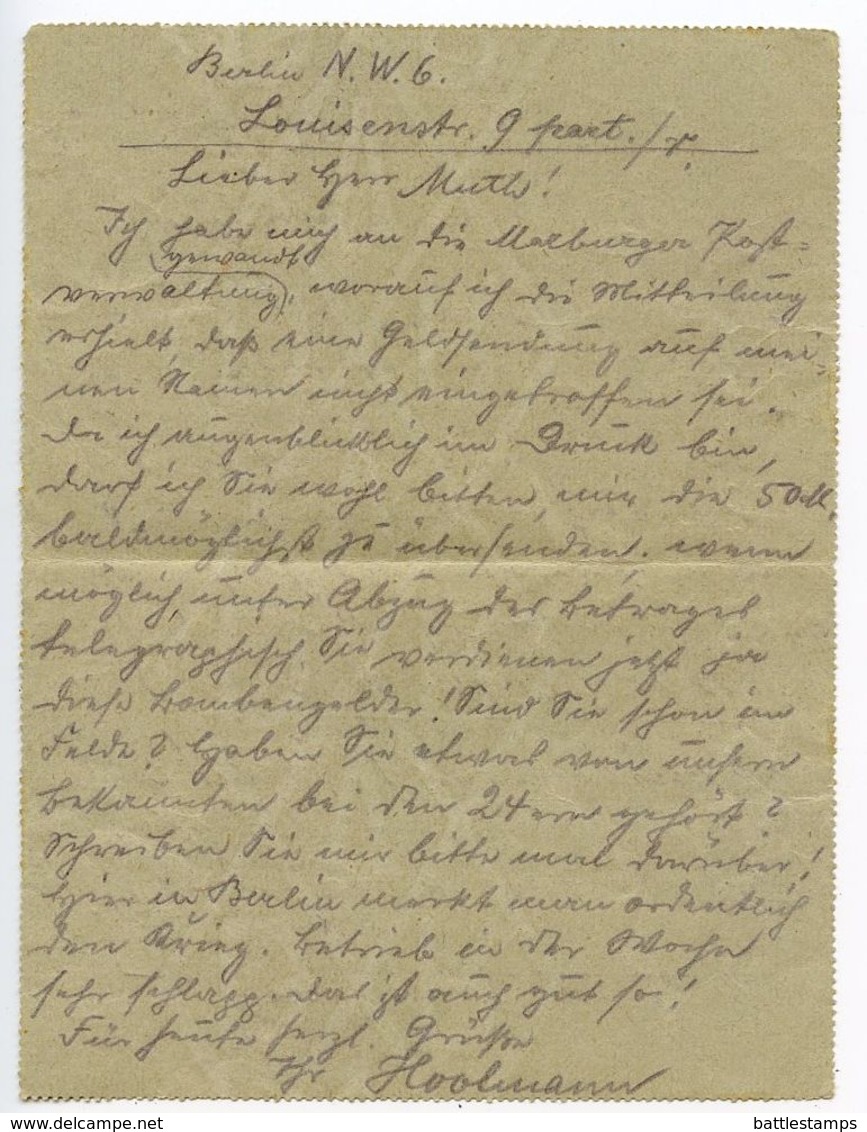 Berlin N.W.6.
Louisenstr. 9 part. / r.
Lieber Herr Muth!
Ich habe mich an die Marburger Post=
gewandt
verwaltung, worauf ich die Mitteilung
erhielt, daß eine Geldsendung auf mei-
nen Namen nicht eingetroffen sei.
Da ich augenblicklich im Druck bin,
darf ich Sie wohl bitten, mir die 50 M.
baldmöglichst zu übersenden, wenn
möglich, unter Abzug des Betrages
telegraphisch. Sie verdienen jetzt ja
diese Bombengelder! Sind Sie schon im
Felde? Haben Sie etwas von unsern
Bekannten bei den 24ern gehört?
Schreiben Sie mir bitte mal darüber!
Hier in Berlin merkt man ordentlich
den Krieg. Betrieb in der Woche
sehr schlapp. Das ist auch gut so!
Für heute herzl. Grüße
Ihr Hoolmann
delcampe.net
battlestamps